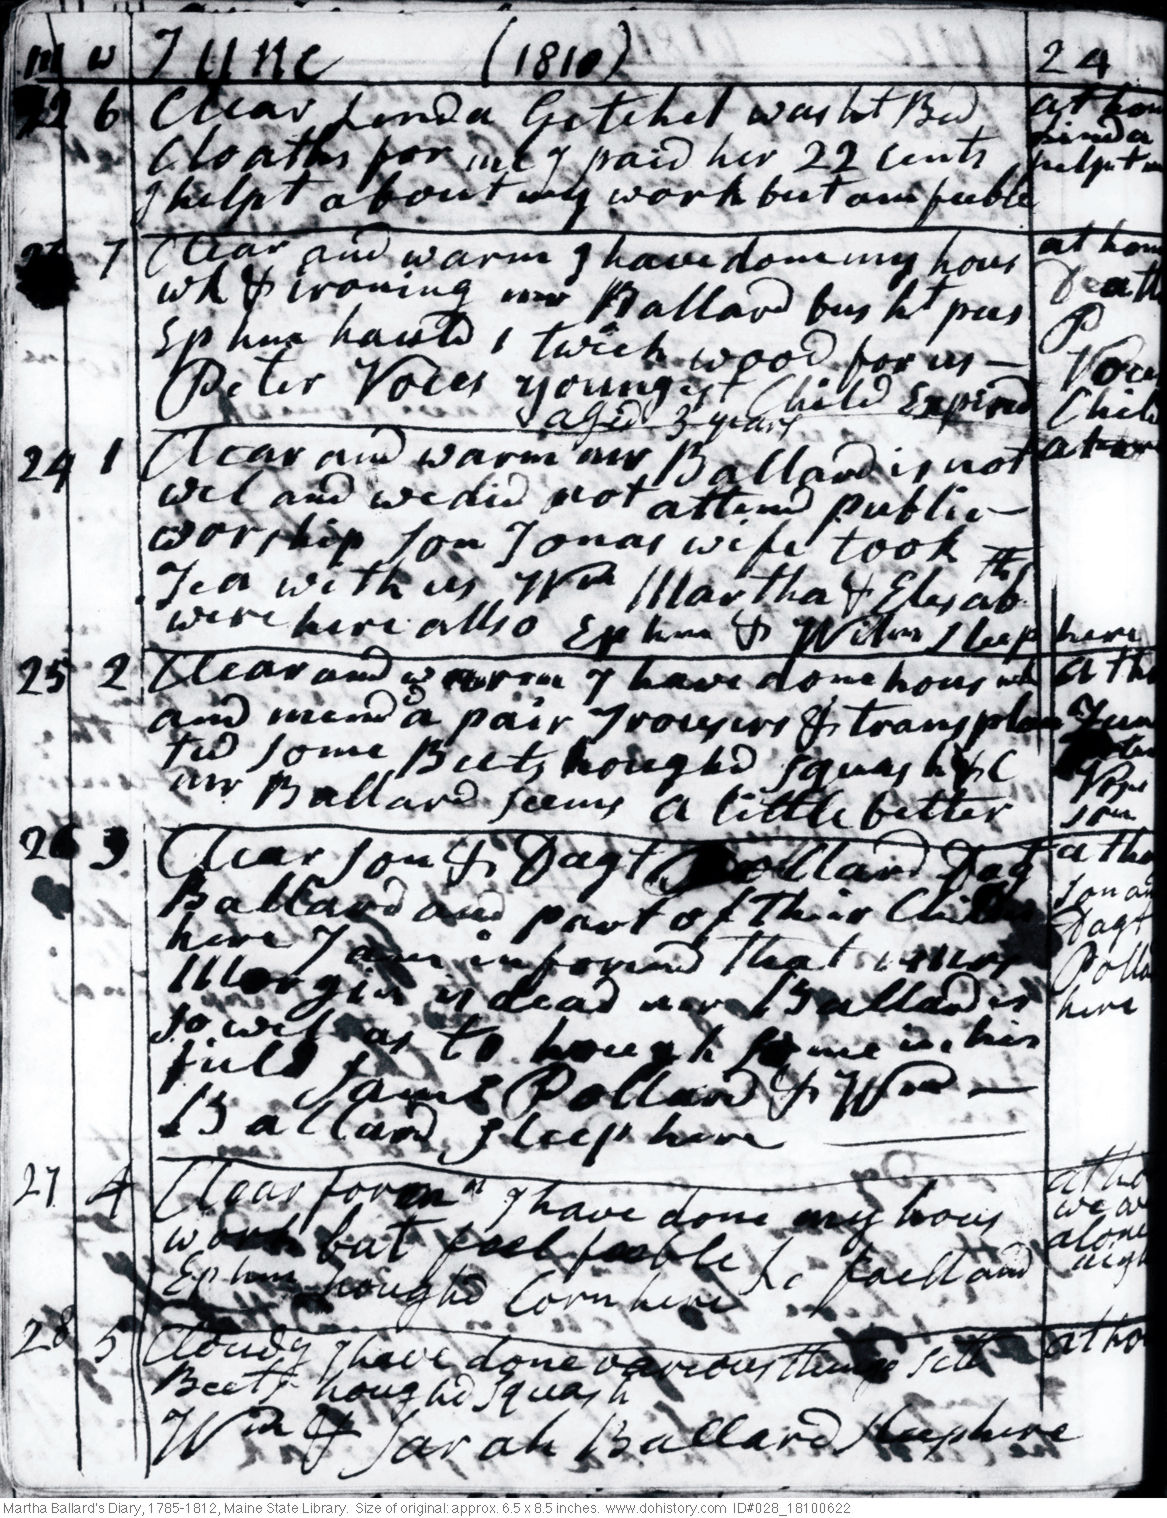 m w June (1810) 24
22 6 Clear Linda Getchel washt Bed at hom
Cloaths for me I paid her 22 Cents Linda
I helpt about my work but am feeble helpt
7 Clear and warm I have done my hous at hom
wk & ironing mr Ballard busht pees Death
Ephm hauld 1 twich wood for us — P
Peter Voces youngest Child Expired Voces
aged 3 years Child
24 1 Clear and warm mr Ballard is not at
wel and we did not attend public —
worship Son Jonas wife took
Tea with us Wm Martha & Elesabth
were here allso Ephm & Wilm sleep here
25 2 Clear and warm I have done hous wk at ho
and mend a pair Trousers & transplan
ted some Beets houghd squash &C
mr Ballard seems a little better
26 3 Clear Son & Dagt Pollard Dagt at ho
Ballard and part of Their Children Son an
here I am informd That mrs Dagt
Morgin is dead mr Ballard is Polla
so wel as to hough some in his here
field James Pollard & Wm —
Ballard sleep here
27 4 Clear forenn I have done my hous at ho
work but feel feeble we
Ephm houghd Corn here alone
28 5 Cloudy I have done various things sett at ho
Beets houghd squash
Wm & Sarah Ballard sleep here
Martha Ballard's Diary, 1785-1812, Maine State Library. Size of original: approx. 6.5 x 8.5 inches. www.dohistory.com ID#028_18100622